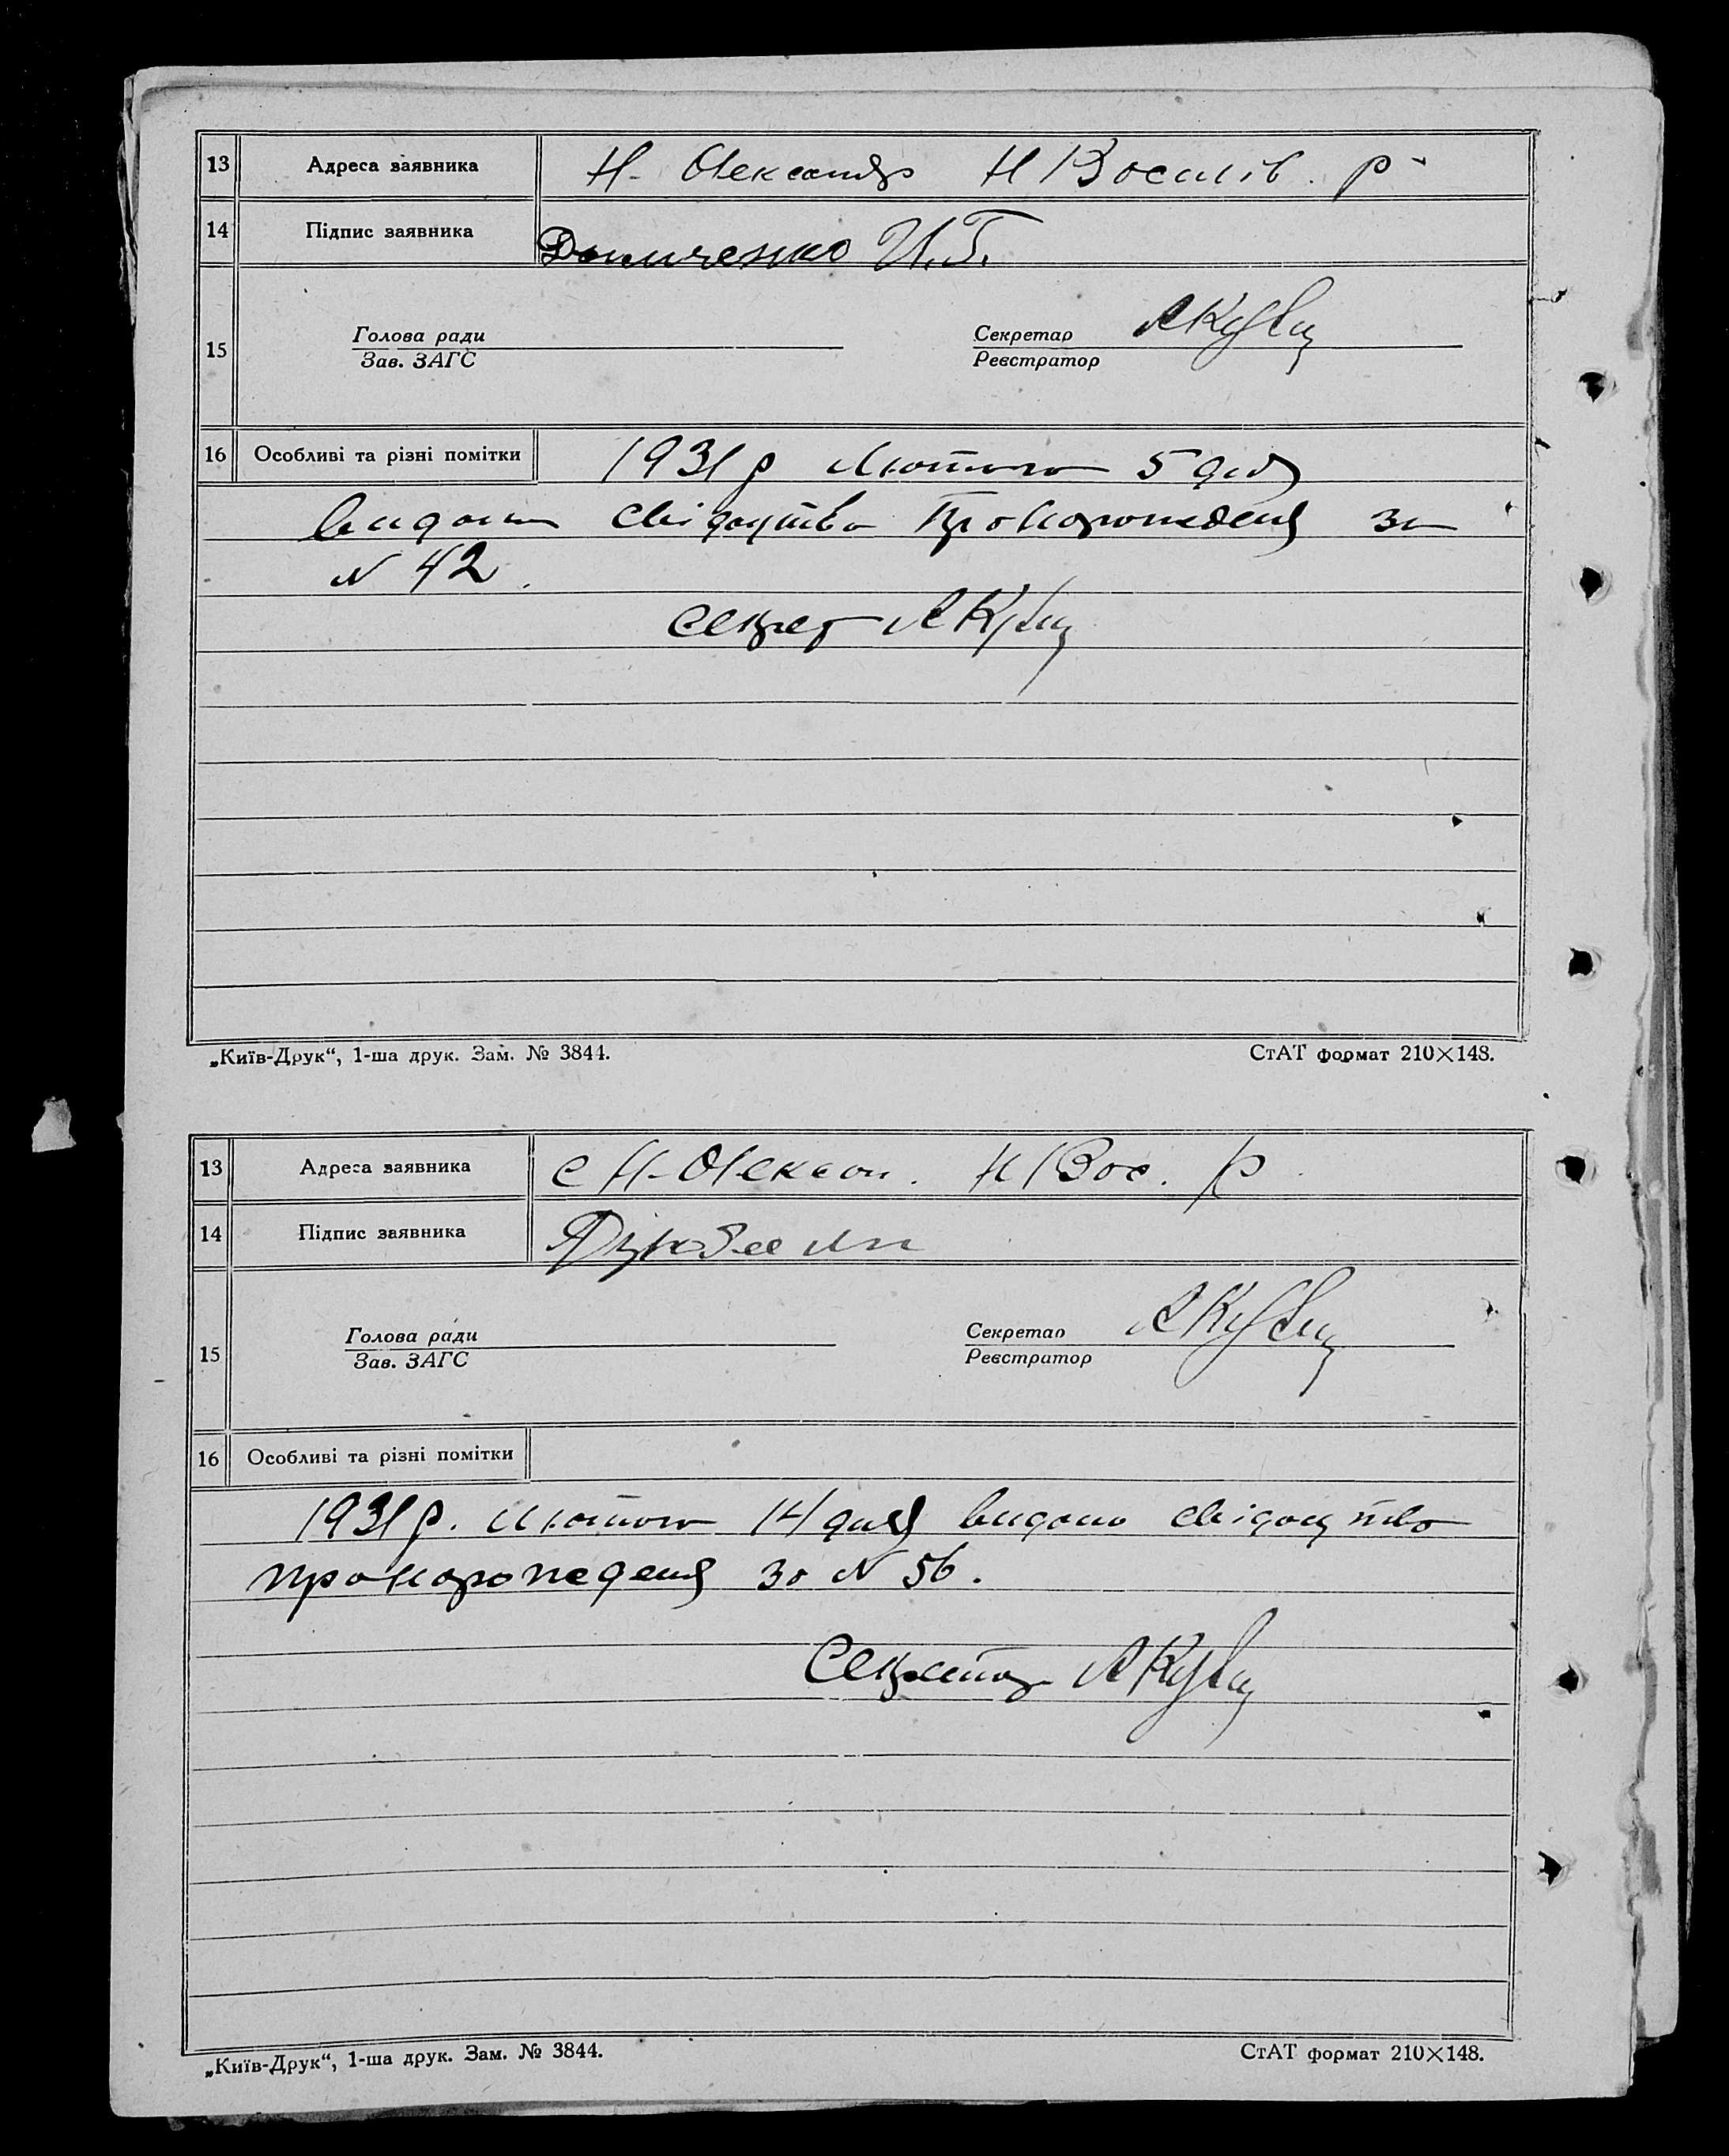 13 Адреса заявника Н- Олександр Н Василів. р-
14 Підпис заявника И.Г.
Голова ради Секретар
15
Зав. ЗАГС Реєстратор
16 Особливі та різні помітки 1931 р Лютого 5 дня
видано свідоцтво про народження за
N 42.
секрет
„Київ-Друк“, 1-ша друк. Зам. № 3844. СтАТ формат 210×148.
13 Адреса заявника с Н-Олексан. Н Вас. р
14 Підпис заявника
Голова ради Секретар
15
Зав. ЗАГС Реєстратор
16 Особливі та різні помітки
1931 р. Лютого 14 дня видано свідоцтво
про народження за N 56.
Секретар
„Київ-Друк“, 1-ша друк. Зам. № 3844. СтАТ формат 210×148.